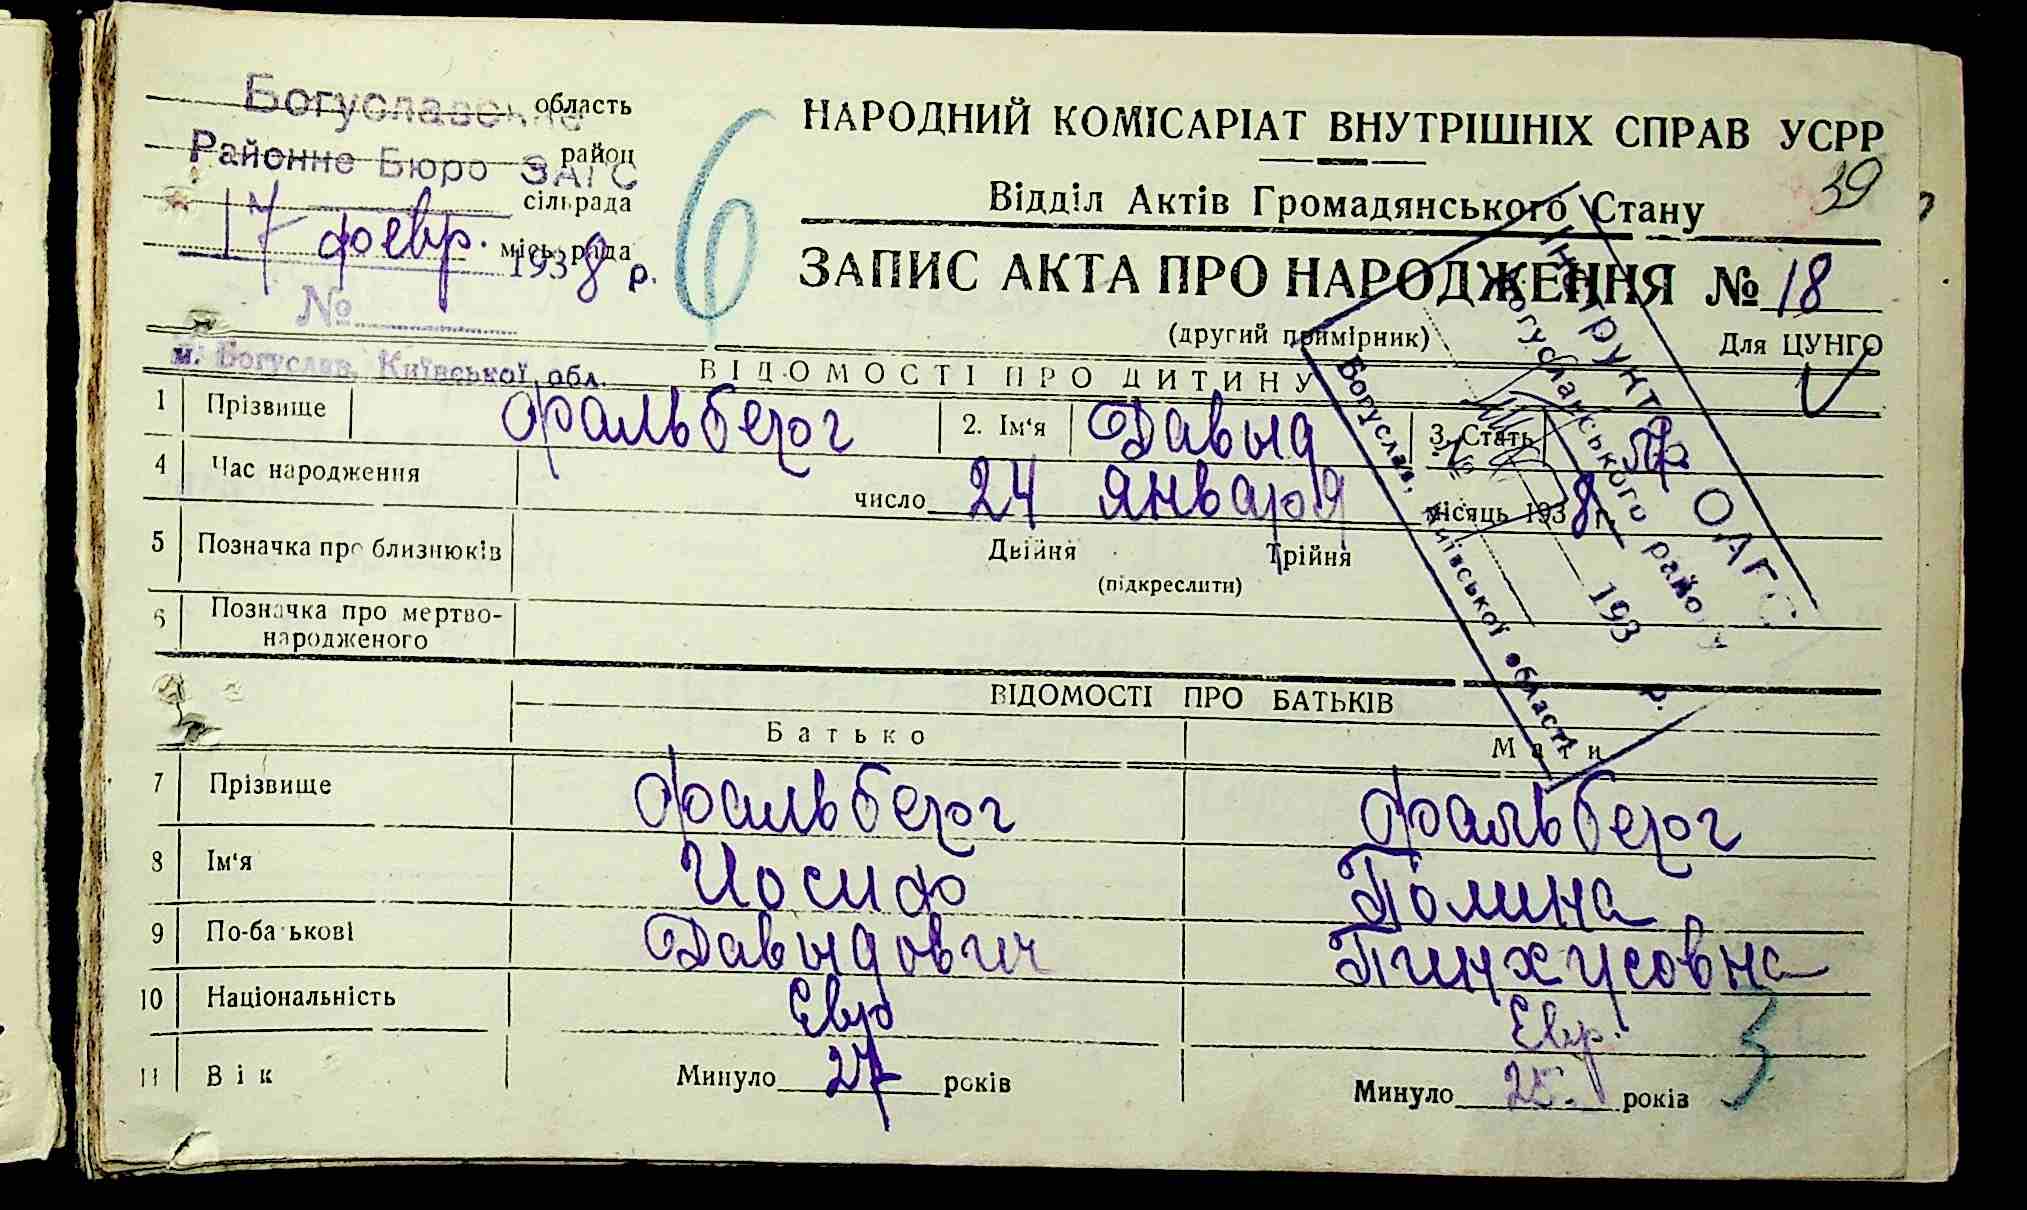 Богуславське область
Районне Бюро ЗАГС район
сільрада
17 февр. міськрада 1938 р.
№
м. Богуслав, Київської обл.
6
НАРОДНИЙ КОМІСАРІАТ ВНУТРІШНІХ СПРАВ УСРР
39
Відділ Актів Громадянського Стану
ЗАПИС АКТА ПРО НАРОДЖЕННЯ № 18
(другий примірник) Для ЦУНГО
ВІДОМОСТІ ПРО ДИТИНУ
1 Прізвище Фальберг 2. Ім'я Давыд 3. Стать
4 Час народження число 24 января місяць 1938 р.
5 Позначка про близнюків Двійня Трійня
(підкреслити)
6 Позначка про мертво-
народженого
Інструктор ОАГС
Богуславського району
№
193 р.
Богуслав, Київської області
ВІДОМОСТІ ПРО БАТЬКІВ
Батько Мати
7 Прізвище Фальберг Фальберг
8 Ім'я Иосиф Полина
9 По-батькові Давыдович Пинхусовна
10 Національність Евр Евр.
11 Вік Минуло 27 років Минуло 25. років
3